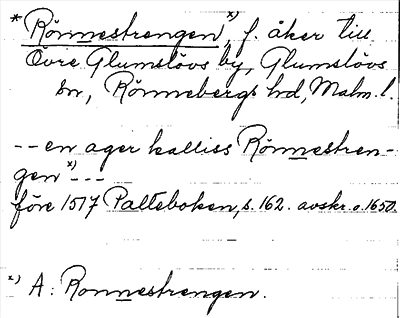 * Rönnestrengen x), f. åker till
Övre Glumslövs by, Glumslövs
sn, Rönnebergs hd, Malm. l.
-- en ager kalliss Rönnestren-
gen x) ---
före 1517 Palteboken, s. 162. avskr. o. 1650.
x) A: Ronnestrengen.